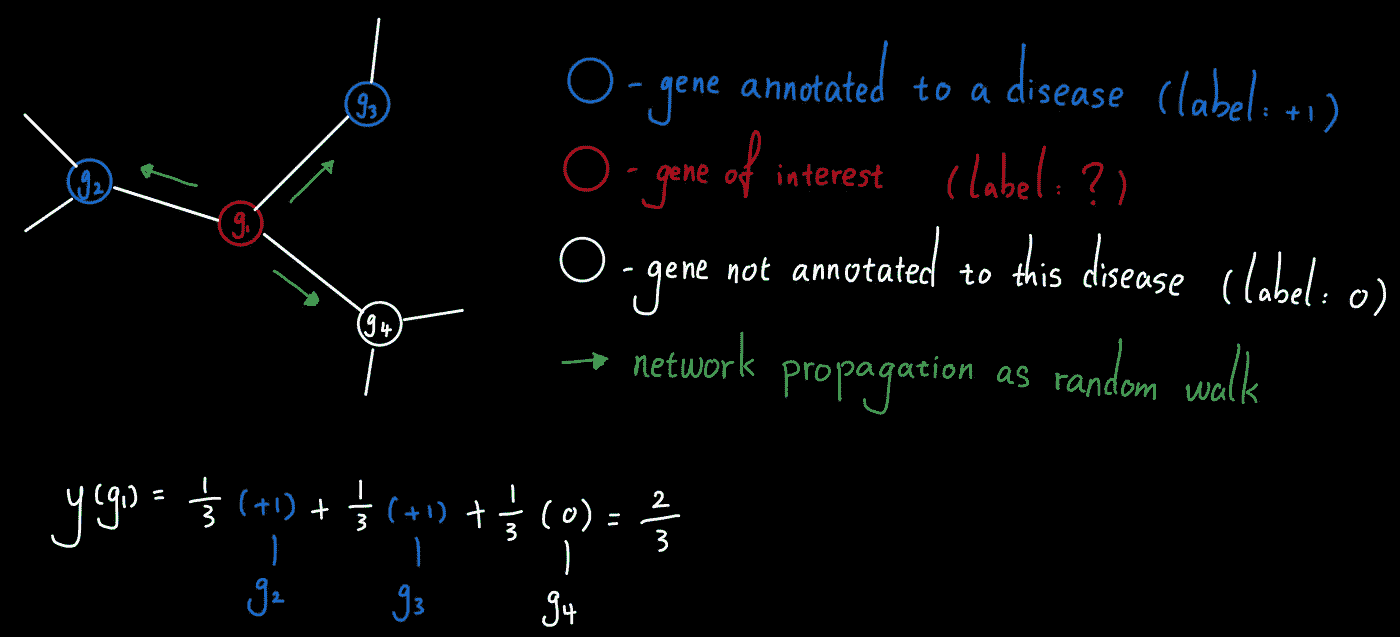 g₃
g₂
g₁
g₄
- gene annotated to a disease (label: +1)
- gene of interest (label: ?)
- gene not annotated to this disease (label: 0)
→ network propagation as random walk
y(g₁) = 1/3 (+1) + 1/3 (+1) + 1/3 (0) = 2/3
g₂ g₃ g₄